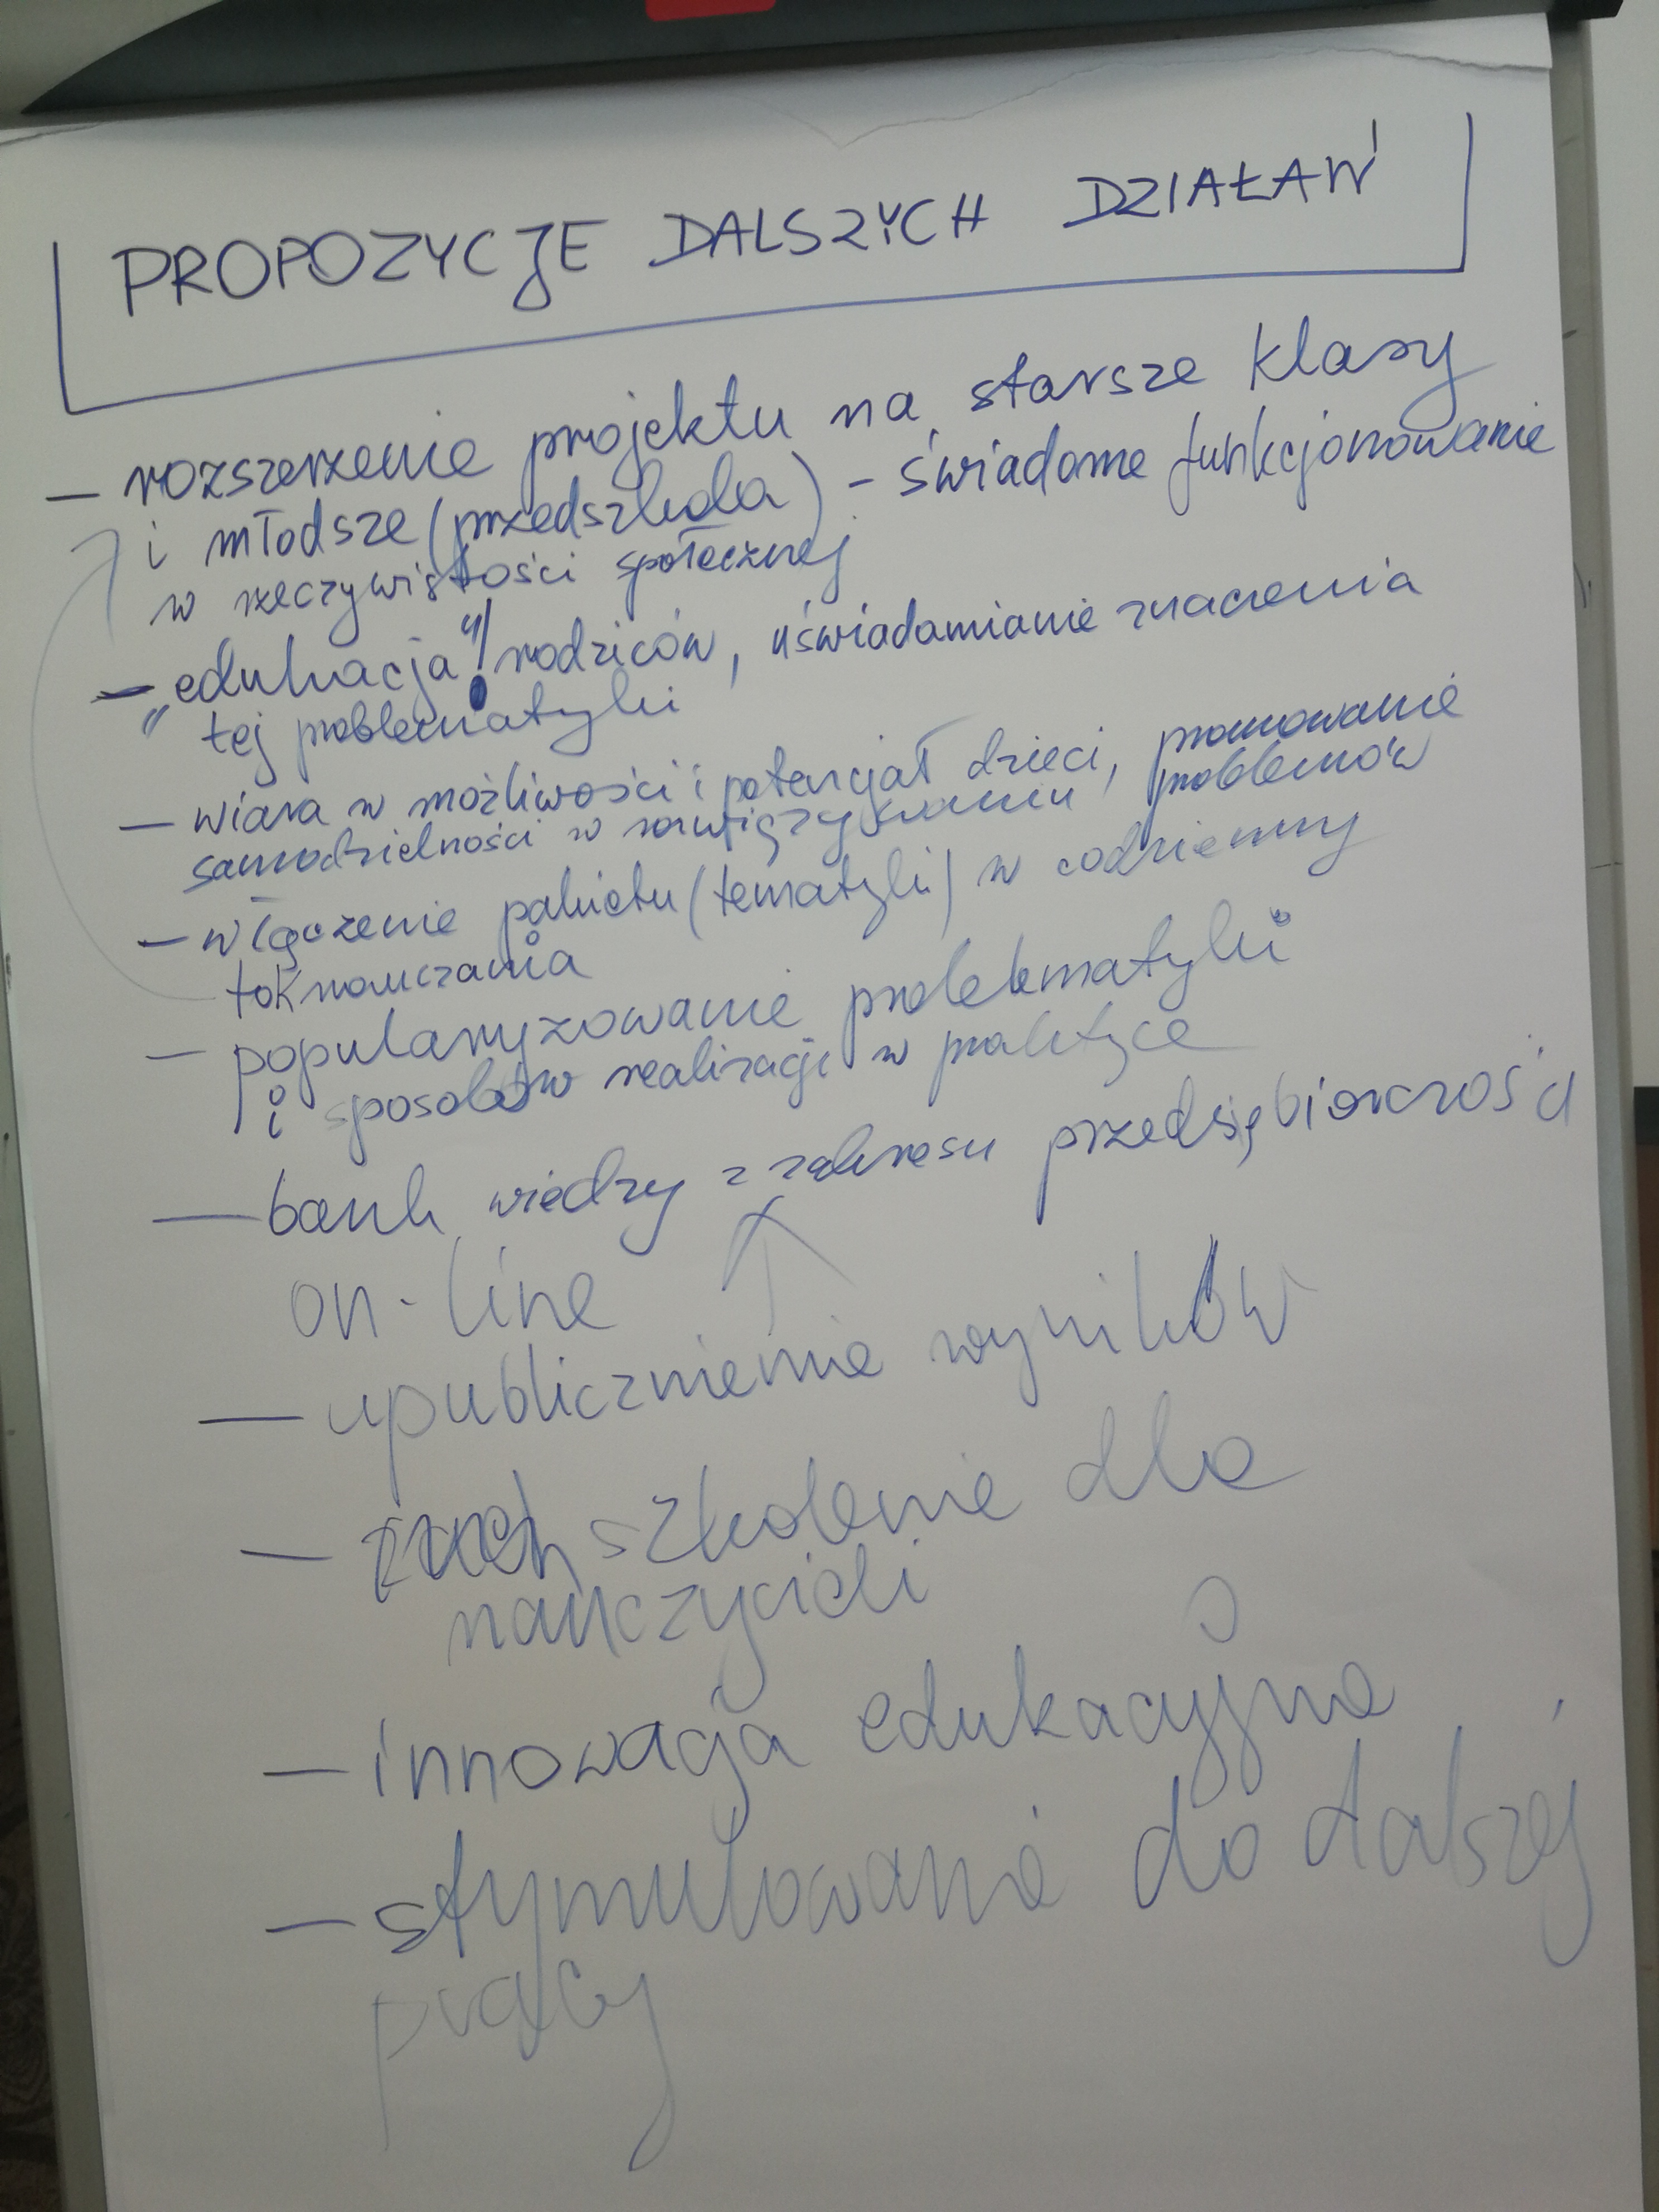 PROPOZYCJE DALSZYCH DZIAŁAŃ
— rozszerzenie projektu na starsze klasy
i młodsze (przedszkola) - świadome funkcjonowanie
w rzeczywistości społecznej
— "edukacja"! rodziców, uświadamianie znaczenia
tej problematyki
— wiara w możliwości i potencjał dzieci, promowanie
samodzielności w rozwiązywaniu problemów
— włączenie pakietu (tematyki) w codzienny
tok nauczania
— popularyzowanie problematyki
i sposobów realizacji w praktyce
— bank wiedzy z zakresu przedsiębiorczości
on-line
— upublicznienie wyników
— szkolenie dla
nauczycieli
— innowacja edukacyjna
— stymulowanie do dalszej
pracy